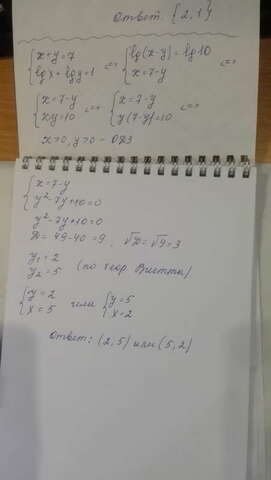 Ответ: {2,1}
{x+y=7 {lg(x·y)=lg10 <=>
{lgx+lgy=1 <=> {x=7-y
{x=7-y <=> {x=7-y <=>
{xy=10 {y(7-y)=10
x>0, y>0 - ОДЗ
{x=7-y
{y²-7y+10=0
y²-7y+10=0
D=49-40=9, √D=√9=3
y₁=2
y₂=5 (по теор. Виетта)
{y=2 или {y=5
{x=5 {x=2
Ответ: (2,5) или (5,2)